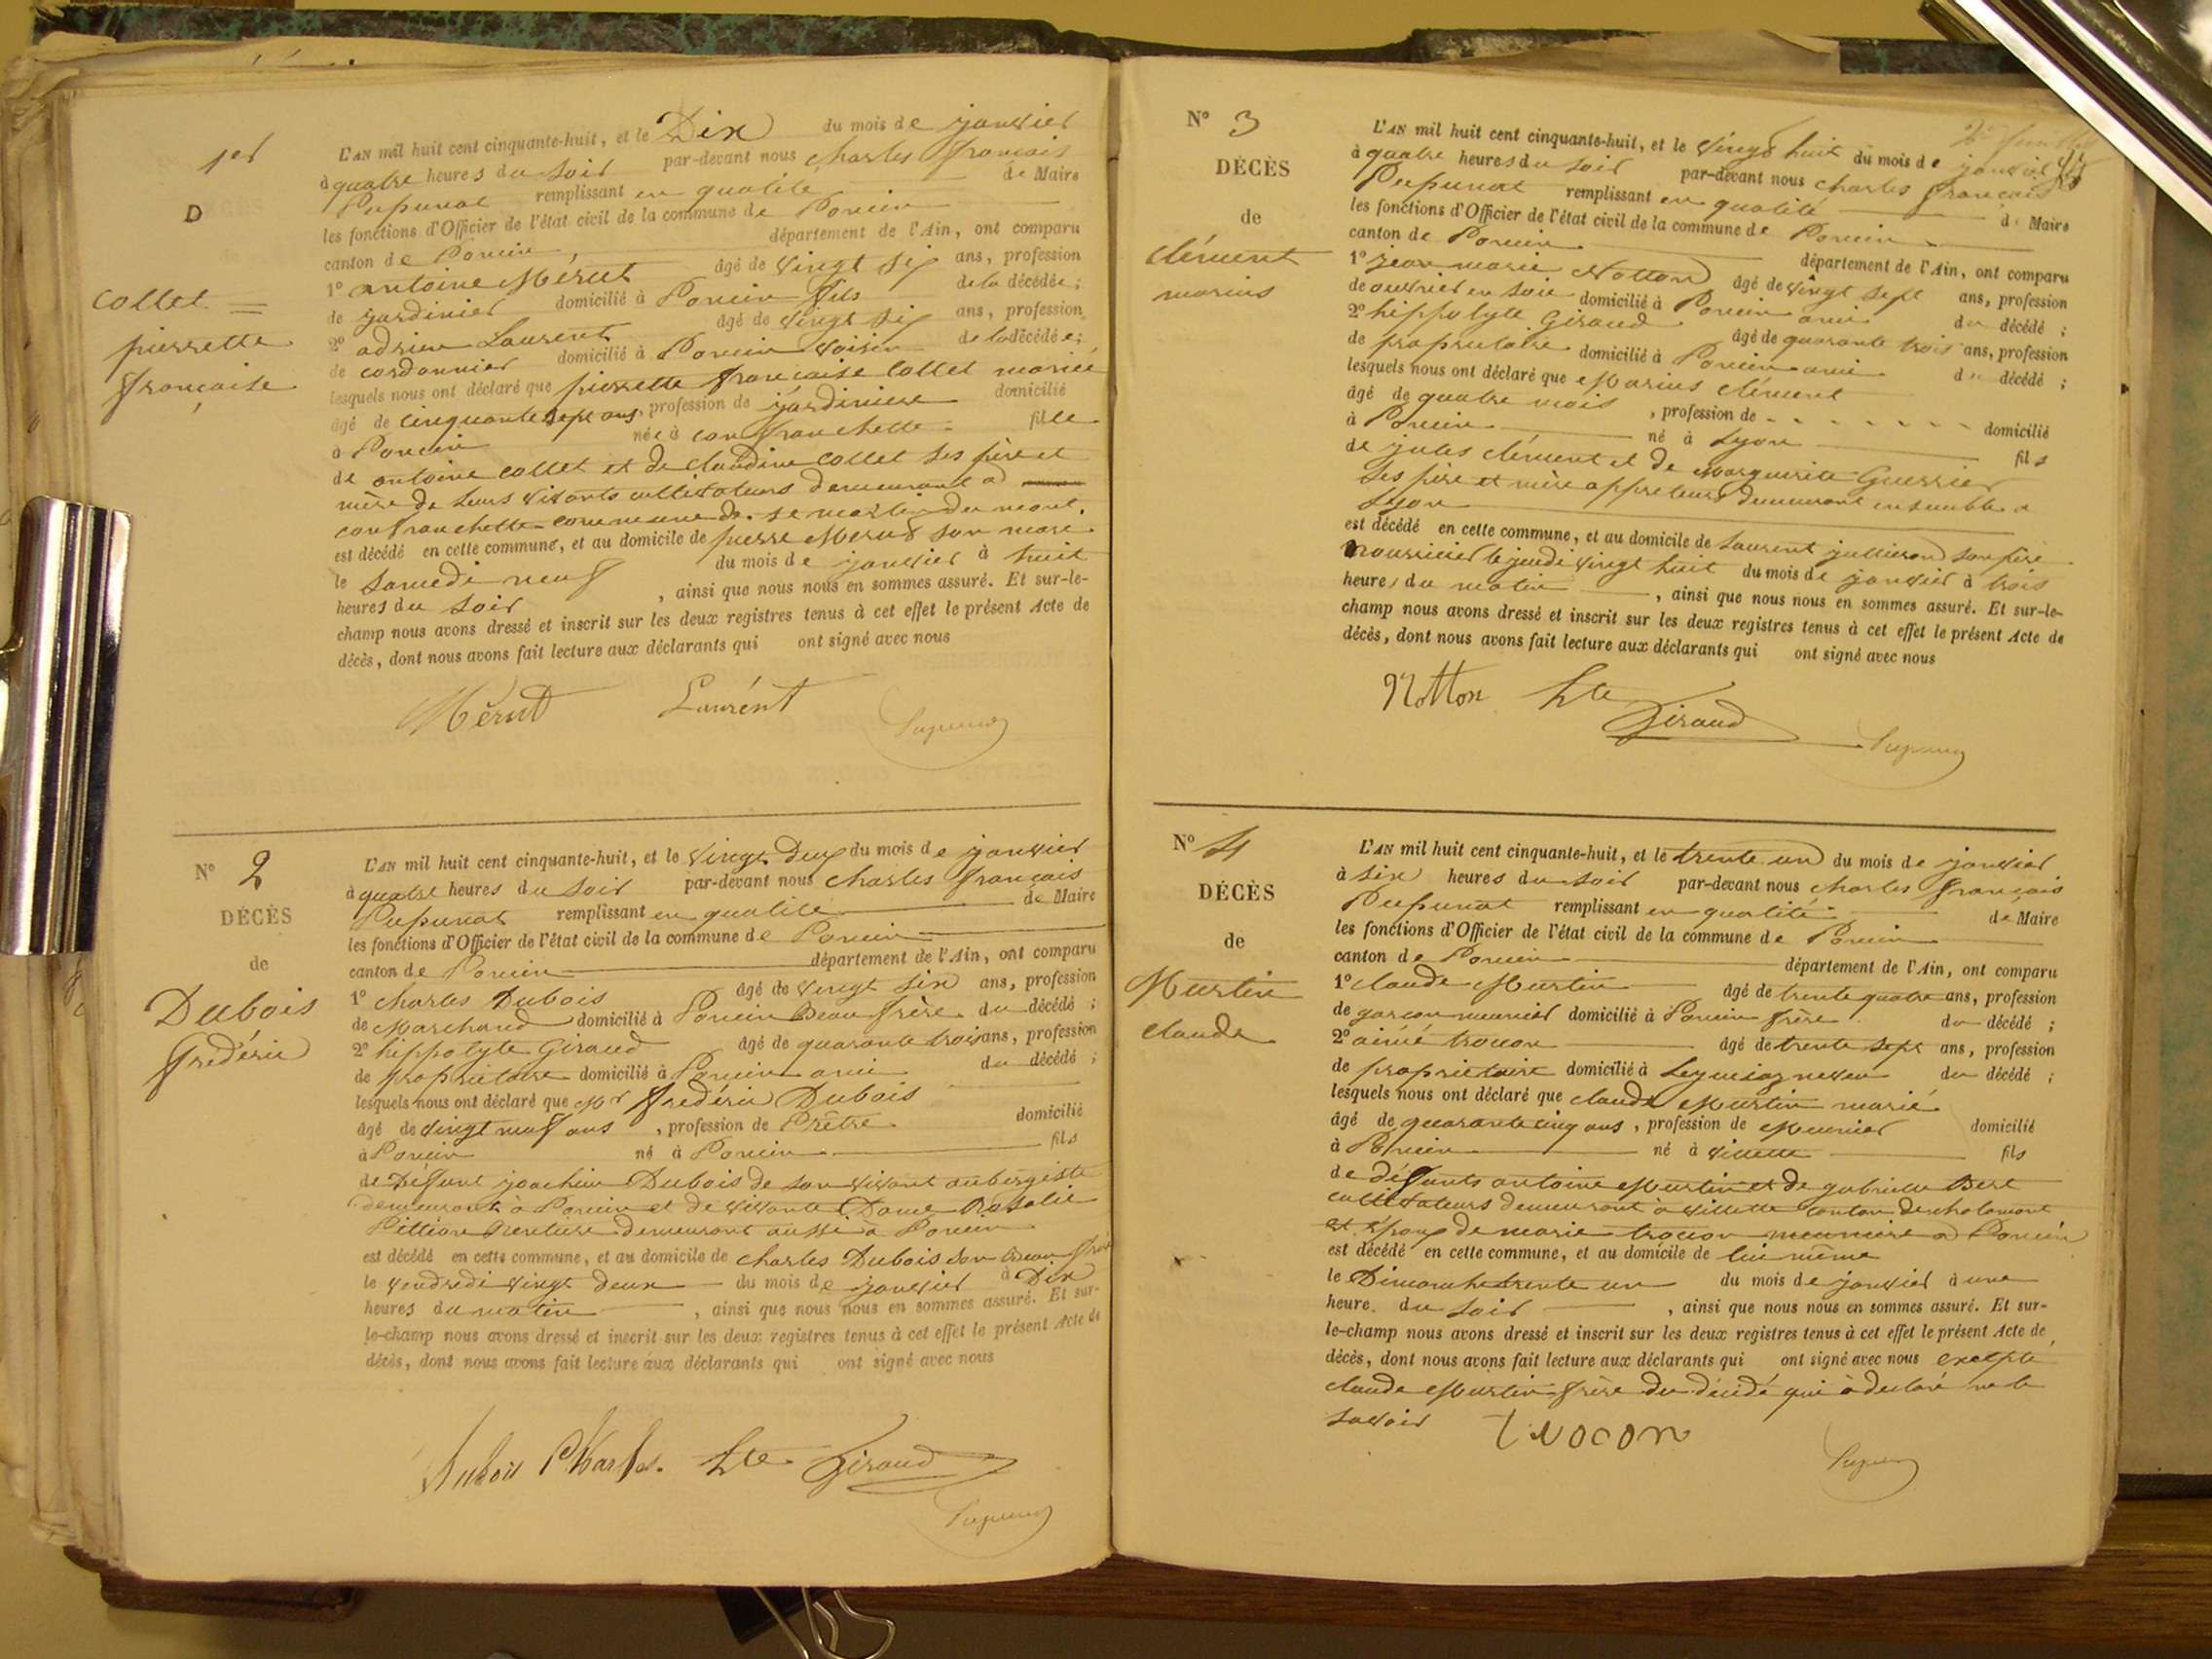 1er
D
Collet
pierrette
françoise
L'AN mil huit cent cinquante-huit, et le Dix du mois de janvier
à quatre heures du soir par-devant nous Charles françois
Pupunat remplissant en qualité de Maire
les fonctions d'Officier de l'état civil de la commune de Poncin
canton de Poncin département de l'Ain, ont comparu
1° antoine Mérut âgé de vingt six ans, profession
de jardinier domicilié à Poncin fils de la décédée ;
2° adrien Laurent âgé de vingt six ans, profession
de cordonnier domicilié à Poncin voisin de la décédée ;
lesquels nous ont déclaré que pierrette françoise Collet mariée
âgé de cinquante sept ans, profession de jardiniere domicilié
à Poncin née à confranchette fille
de antoine Collet et de Claudine Collet ses père et
mère de leurs vivants cultivateurs demeurant à
confranchette commune de st martin du mont.
est décédé en cette commune, et au domicile de pierre Merut son mari
le samedi neuf du mois de janvier à huit
heures du soir , ainsi que nous nous en sommes assuré. Et sur-le-
champ nous avons dressé et inscrit sur les deux registres tenus à cet effet le présent Acte de
décès, dont nous avons fait lecture aux déclarants qui ont signé avec nous
Mérut Laurent Pupunat
N° 2
DÉCÈS
de
Dubois
frédéric
L'AN mil huit cent cinquante-huit, et le vingt Deux du mois de janvier
à quatre heures du soir par-devant nous Charles français
Pupunat remplissant en qualité de Maire
les fonctions d'Officier de l'état civil de la commune de Poncin
canton de Poncin département de l'Ain, ont comparu
1° Charles Dubois âgé de vingt six ans, profession
de Marchand domicilié à Poncin Beau frère du décédé ;
2° hippolyte Giraud âgé de quarante trois ans, profession
de propriétaire domicilié à Poncin ami du décédé ;
lesquels nous ont déclaré que Mr frédéric Dubois
âgé de vingt neuf ans , profession de Prêtre domicilié
à Poncin né à Poncin fils
de Défunt joachim Dubois de son vivant aubergiste
demeurant à Poncin et de vivante Dame Rosalie
Pittion Rentière demeurant aussi à Poncin
est décédé en cette commune, et au domicile de Charles Dubois son Beau frère
le vendredi vingt deux du mois de janvier à Dix
heures du matin , ainsi que nous nous en sommes assuré. Et sur-
le-champ nous avons dressé et inscrit sur les deux registres tenus à cet effet le présent Acte de
décès, dont nous avons fait lecture aux déclarants qui ont signé avec nous
Dubois Charles Hte Giraud
Pupunat
N° 3
DÉCÈS
de
Clément
marius
L'AN mil huit cent cinquante-huit, et le vingt huit du mois de janvier
à quatre heures du soir par-devant nous Charles français
Pupunat remplissant en qualité de Maire
les fonctions d'Officier de l'état civil de la commune de Poncin
canton de Poncin département de l'Ain, ont comparu
1° jean marie Notton âgé de vingt sept ans, profession
de ouvrier en soie domicilié à Poncin ami du décédé ;
2° hippolyte Giraud âgé de quarante trois ans, profession
de propriétaire domicilié à Poncin ami du décédé ;
lesquels nous ont déclaré que Marius Clément
âgé de quatre mois , profession de domicilié
à Poncin né à Lyon fils
de jules Clément et de Marguerite Guerrier
ses père et mère appreteurs demeurant ensemble a
Lyon
est décédé en cette commune, et au domicile de Laurent jullierand son père
nourricier le jeudi vingt huit du mois de janvier à trois
heures du matin , ainsi que nous nous en sommes assuré. Et sur-le-
champ nous avons dressé et inscrit sur les deux registres tenus à cet effet le présent Acte de
décès, dont nous avons fait lecture aux déclarants qui ont signé avec nous
Notton Hte Giraud
Pupunat
N° 4
DÉCÈS
de
Murtin
Claude
L'AN mil huit cent cinquante-huit, et le trente un du mois de janvier
à six heures du soir par-devant nous Charles français
Pupunat remplissant en qualité de Maire
les fonctions d'Officier de l'état civil de la commune de Poncin
canton de Poncin département de l'Ain, ont comparu
1° Claude Murtin âgé de trente quatre ans, profession
de garçon meunier domicilié à Poncin frère du décédé ;
2° aimé trocon âgé de trente sept ans, profession
de propriétaire domicilié à Leymiaz neveu du décédé ;
lesquels nous ont déclaré que Claude Murtin marié
âgé de quarante cinq ans, profession de Meunier domicilié
à Poncin né à villette fils
de défunts antoine Murtin et de gabrielle
cultivateurs demeurant à villette canton de chalamont
et époux de marie trocon meuniere a Poncin
est décédé en cette commune, et au domicile de lui même
le Dimanche trente un du mois de janvier à une
heure du soir , ainsi que nous nous en sommes assuré. Et sur-
le-champ nous avons dressé et inscrit sur les deux registres tenus à cet effet le présent Acte de
décès, dont nous avons fait lecture aux déclarants qui ont signé avec nous excepté
Claude Murtin frère du décédé qui à declaré ne le
savoir trocon
Pupunat